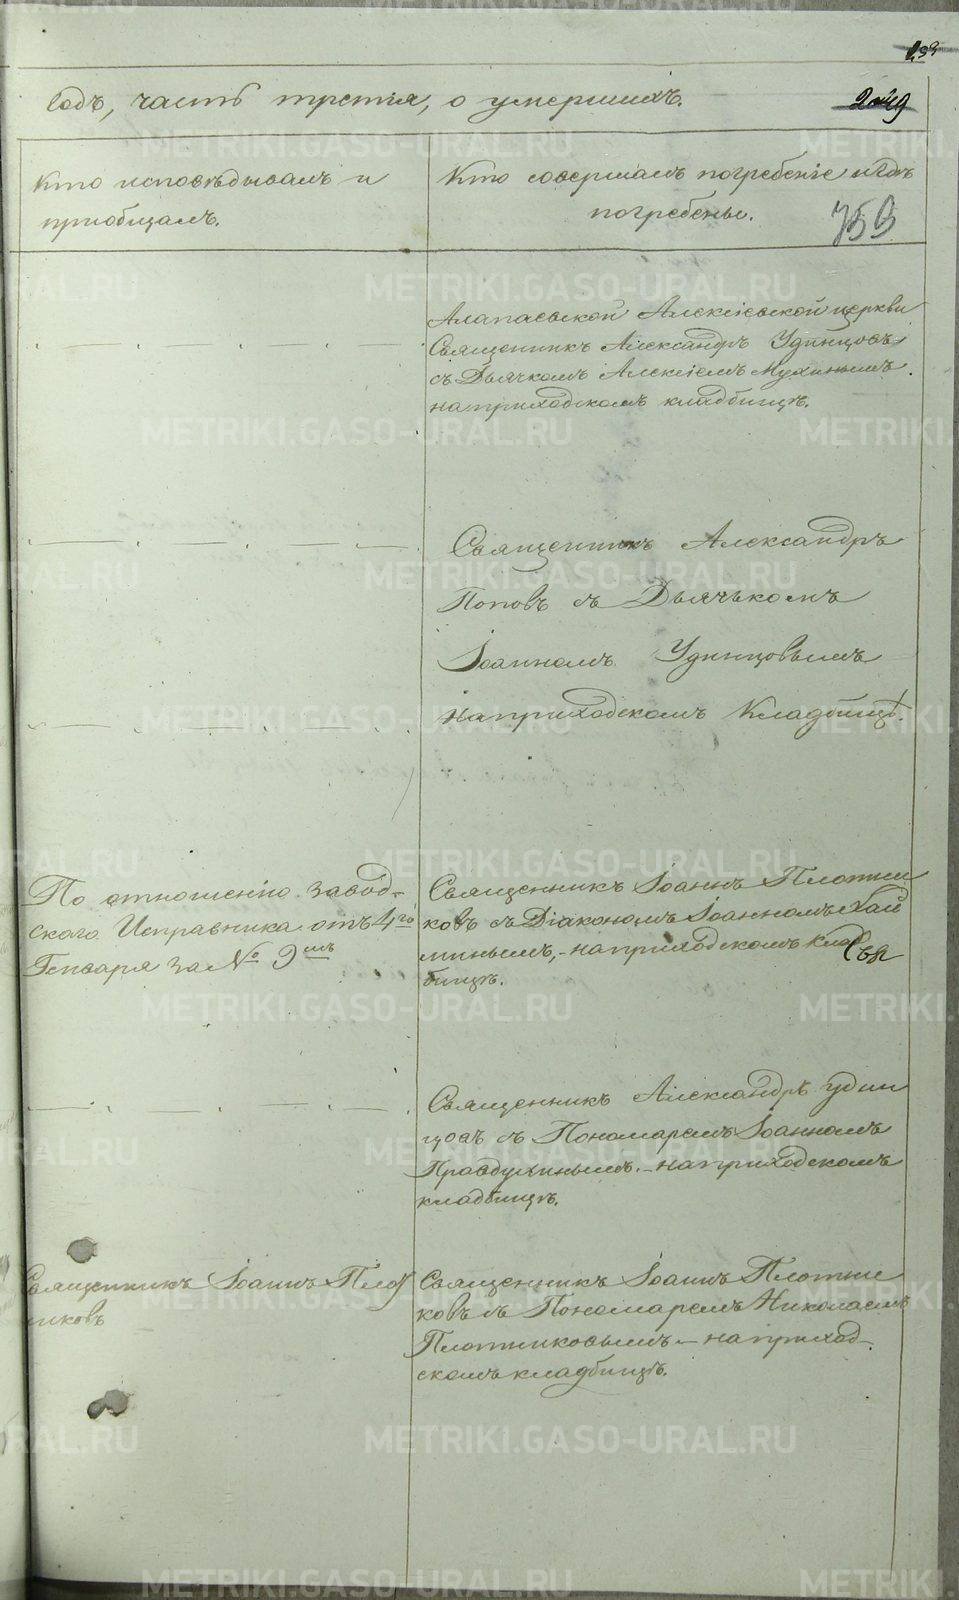 годъ, часть третія, о умершихъ.
753
Кто исповѣдывалъ и
пріобщалъ.
Кто совершалъ погребеніе и гдѣ
погребены.
Алапаевской Алексіевской церкви
Священникъ Александръ Удинцовъ
съ Дьячкомъ Алексіемъ Мухинымъ.
на приходскомъ кладбищѣ.
Священникъ Александръ
Поповъ съ Дьячькомъ
Іоанномъ Удинцовымъ
на приходскомъ Кладбищѣ.
По отношенію завод-
скаго Исправника отъ 4го
Генваря за № 9мъ
Священникъ Іоаннъ Плотни
ковъ съ Діакономъ Іоанномъ
на приходскомъ клад
бищѣ.
Священникъ Александръ Удин
цовъ съ Пономаремъ Іоанномъ
Правдухинымъ. - на приходскомъ
кладбищѣ.
Священникъ Іоаннъ Плот
никовъ
Священникъ Іоаннъ Плотни
ковъ съ Пономаремъ Николаемъ
Плотниковымъ - на приход-
скомъ кладбищѣ.
METRIKI.GASO-URAL.RU